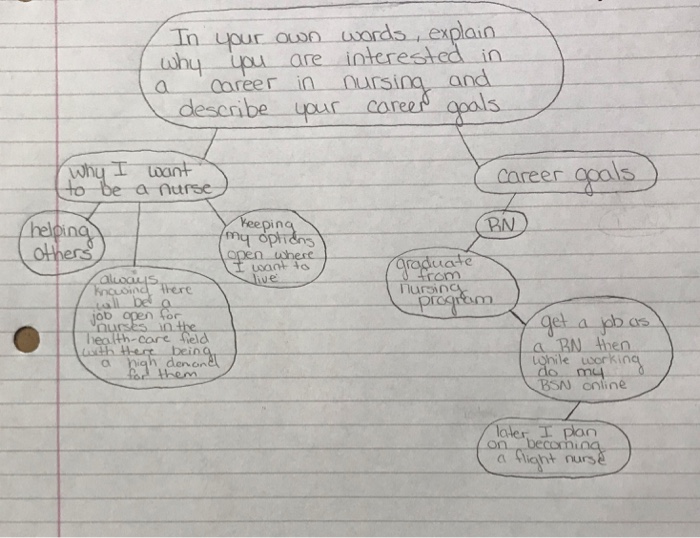 In your own words, explain
why you are interested in
a career in nursing and
describe your career goals
why I want
to be a nurse
helping
others
always
knowing there
will be a
job open for
nurses in the
health-care field
with there being
a high demand
for them
keeping
my options
open where
I want to
live
career goals
RN
graduate
from
nursing
program
get a job as
a RN then
while working
do my
BSN online
later I plan
on becoming
a flight nurse